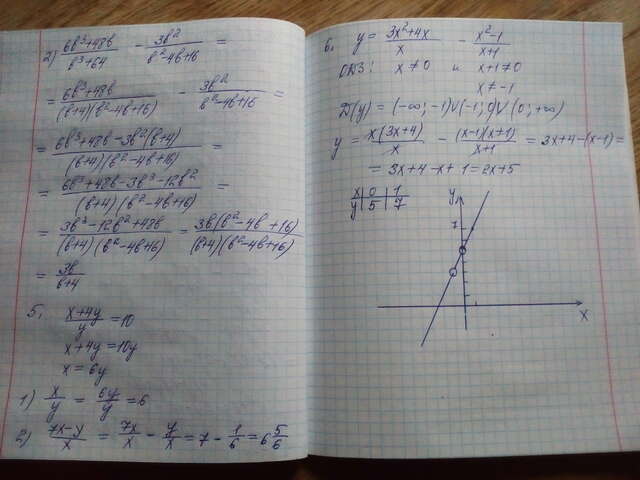 2) (6b³+48b)/(b³+64) - 3b²/(b²-4b+16) =
= (6b³+48b)/((b+4)(b²-4b+16)) - 3b²/(b²-4b+16) =
= (6b³+48b-3b²(b+4))/((b+4)(b²-4b+16)) =
= (6b³+48b-3b³-12b²)/((b+4)(b²-4b+16)) =
= (3b³-12b²+48b)/((b+4)(b²-4b+16)) = 3b(b²-4b+16)/((b+4)(b²-4b+16))
= 3b/(b+4)
5. (x+4y)/y = 10
x+4y = 10y
x = 6y
1) x/y = 6y/y = 6
2) (7x-y)/x = 7x/x - y/x = 7 - 1/6 = 6 5/6
6. y = (3x²+4x)/x - (x²-1)/(x+1)
ОДЗ: x ≠ 0 и x+1 ≠ 0
x ≠ -1
D(y) = (-∞; -1)∪(-1; 0)∪(0; +∞)
y = x(3x+4)/x - (x-1)(x+1)/(x+1) = 3x+4-(x-1) =
= 3x+4-x+1 = 2x+5
x 0 1
y 5 7
y
7
x